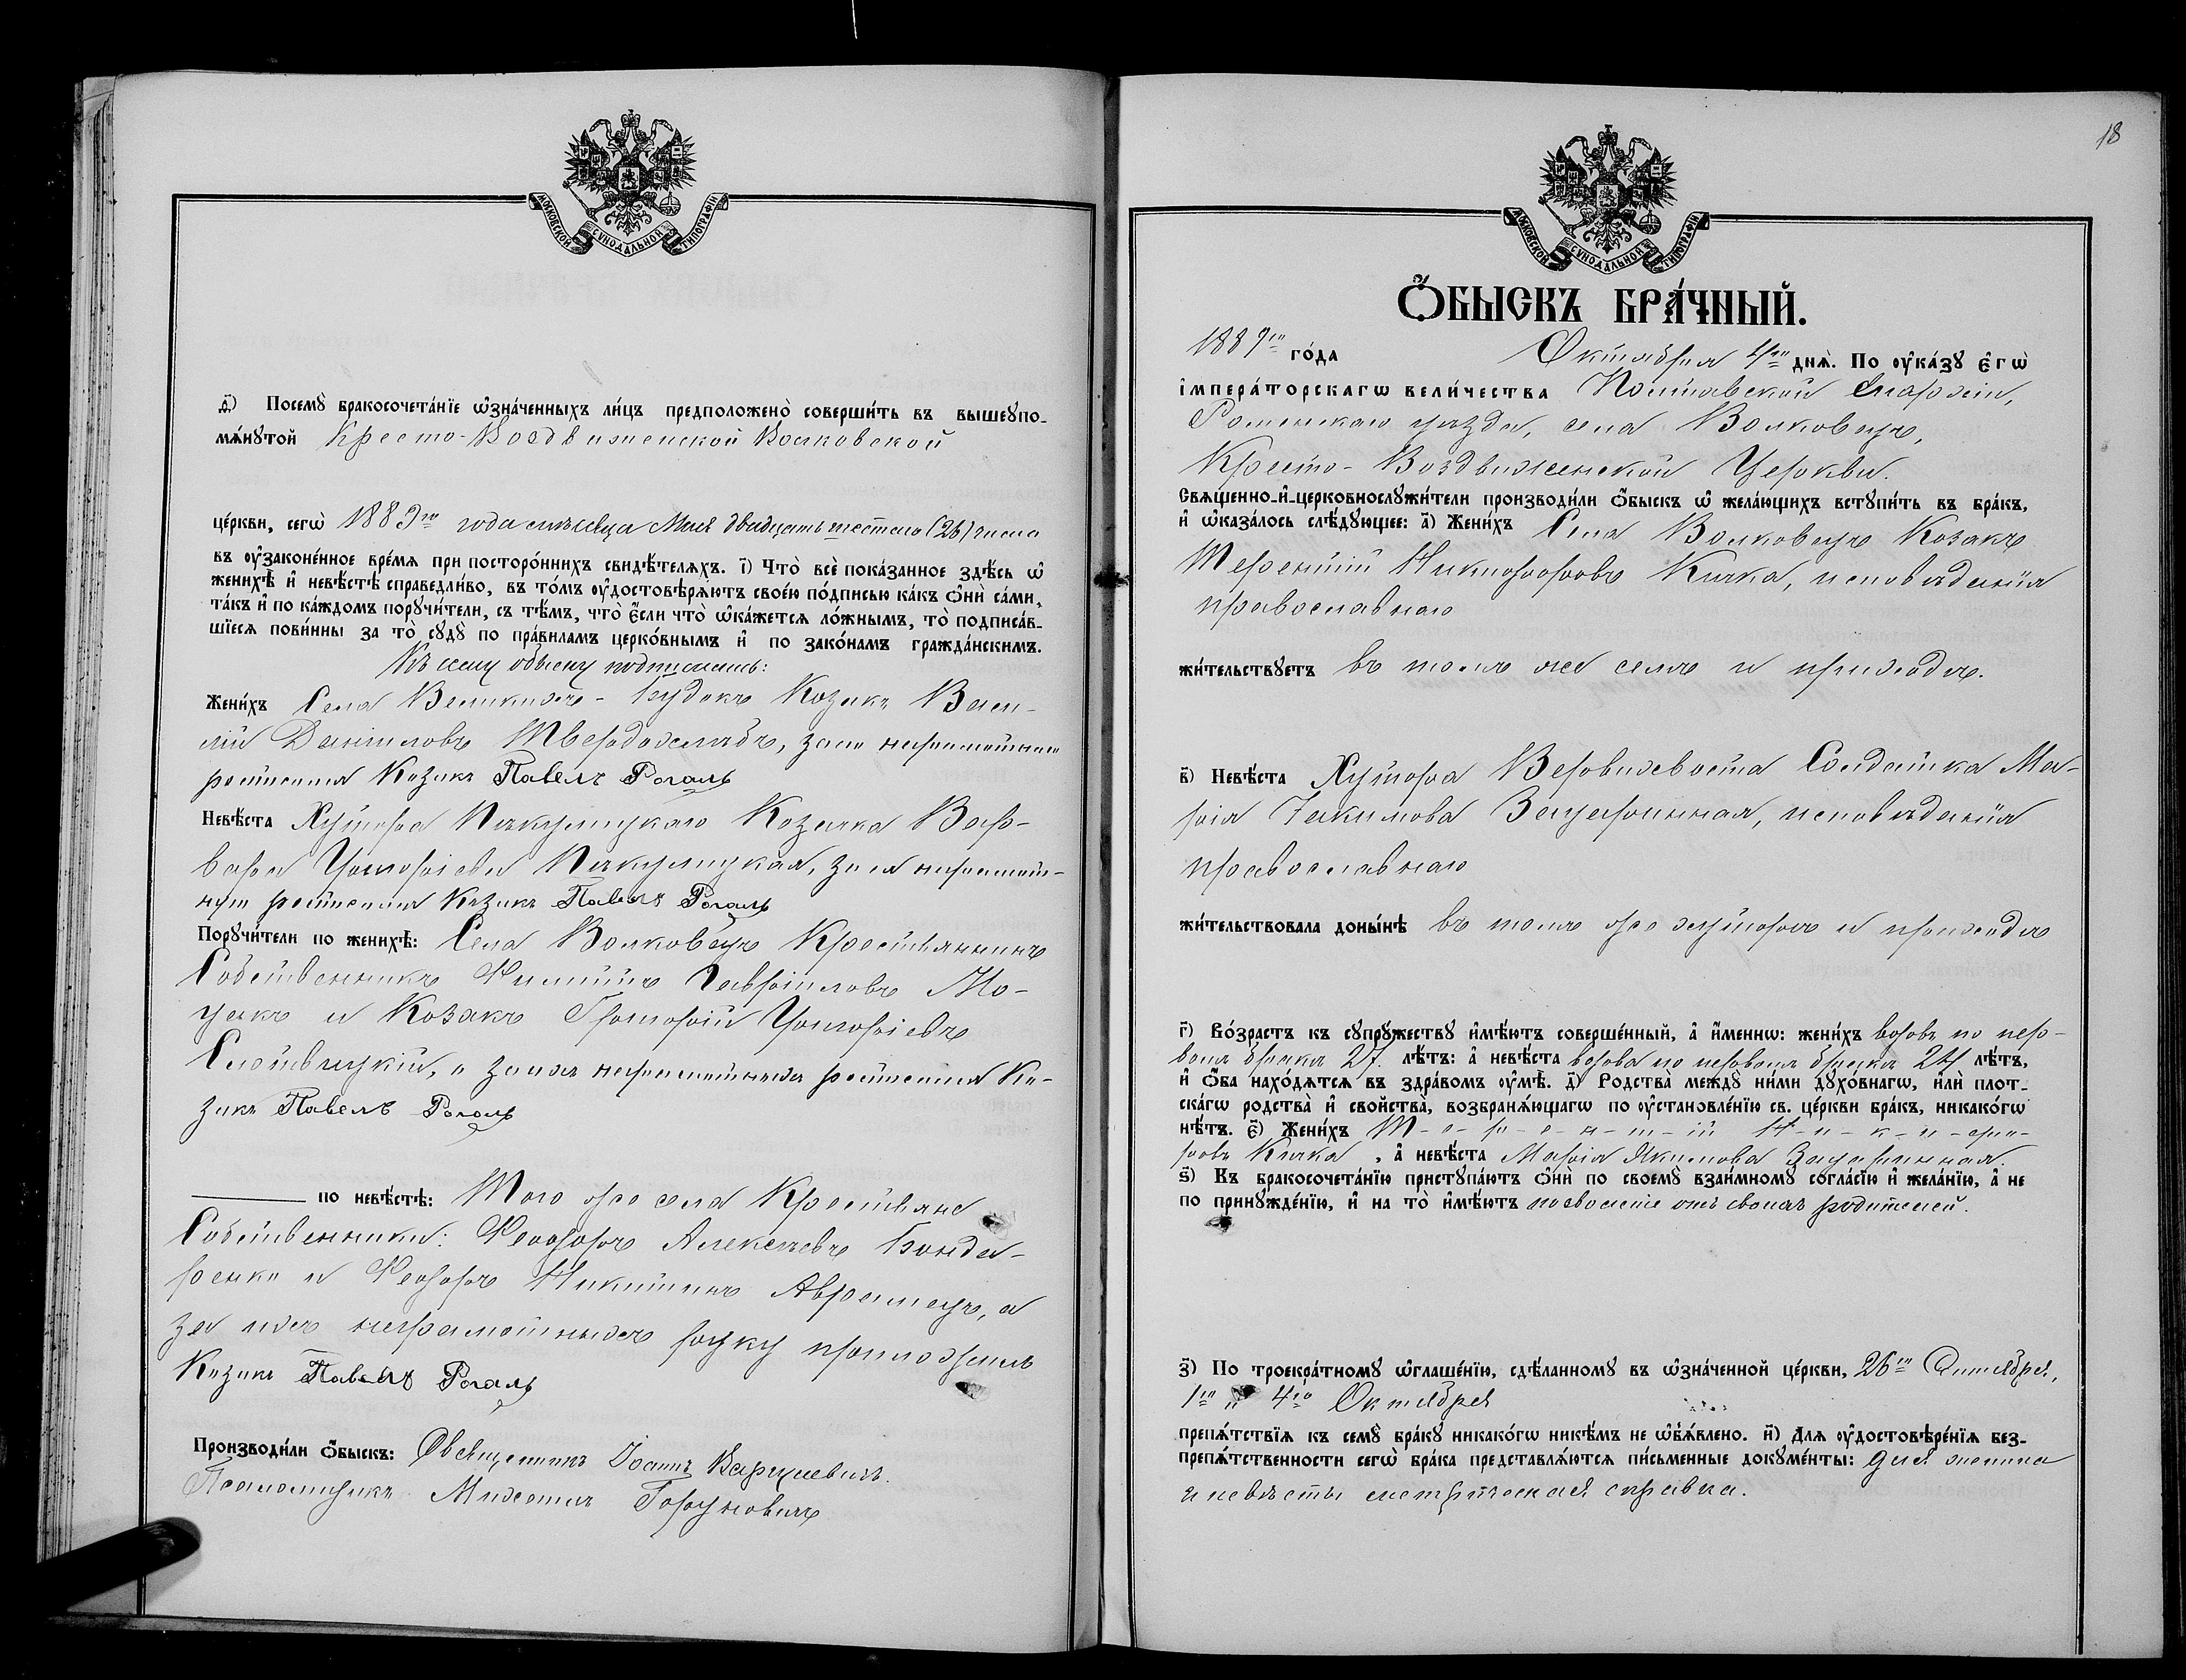 МОСКОВСКОЙ СѴНОДАЛЬНОЙ ТИПОГРАФІИ
ѳ҃) Посемꙋ̀ бракосочета́нїе ѡ҆зна́ченныхъ ли́цъ предположено̀ соверши́ть въ вышеꙋпо-
мѧ́нꙋтой Кресто-Воздвиженской Волковской
це́ркви, сегѡ̀ 1889го года месяца Мая двадцать шестаго (26) числа
въ ᲂу҆законе́нное вре́мѧ при посторо́ннихъ свидѣ́телѧхъ. і҃) Что̀ всѐ пока́занное здѣ́сь ѡ҆
женихѣ̀ и҆ невѣ́стѣ справедли́во, въ то́мъ ᲂу҆достовѣрѧ́ютъ свое́ю по́дписью ка́къ ѻ҆нѝ са́ми,
та́къ и҆ по ка́ждомъ порꙋчи́тели, съ тѣ́мъ, что̀ є҆́сли что̀ ѡ҆ка́жетсѧ ло́жнымъ, то̀ подписа́в-
шїесѧ пови́нны за то̀ сꙋдꙋ̀ по пра́виламъ церко́внымъ и҆ по зако́намъ гражда́нскимъ.
Къ сему обыску подписались:
Жени́хъ Села Великихъ-Будокъ Козакъ Васи-
лій Даниловъ Твердохлѣбъ, за него неграмотнаго
росписался Козакъ Павелъ Рогаль
Невѣ́ста Хутора Пакулицкаго Козачка Вар-
вара Григоріева Пакулицкая, за нея неграмот-
ную росписался Козакъ Павелъ Рогаль
Порꙋчи́тели по женихѣ̀: Села Волковецъ Крестьянинъ
Собственникъ Филиппъ Гавріиловъ Мо-
цакъ и Козакъ Григорій Григоріевъ
а за нихъ неграмотныхъ росписался Ко-
закъ Павелъ Рогаль
по невѣ́стѣ: Того же села Крестьяне
Собственники: Ѳеодоръ Алексѣевъ Бонда-
ренко и Ѳеодоръ Никитинъ Аврамецъ, а
за нихъ неграмотныхъ руку приложилъ
Козакъ Павелъ Рогаль
Производи́ли ѻ҆́быскъ: Священникъ Іоаннъ
Псаломщикъ Михаилъ Горуновичъ
18
МОСКОВСКОЙ СѴНОДАЛЬНОЙ ТИПОГРАФІИ
Ѻ҆́БЫСКЪ БРА́ЧНЫЙ.
1889го го́да Октября 4го днѧ̀. По ᲂу҆ка́зꙋ є҆гѡ̀
і҆мпера́торскагѡ вели́чества Полтавской Епархіи,
Роменскаго уѣзда, села Волковецъ,
Кресто-Воздвиженской Церкви.
Свѧщенно-и҆-церковнослꙋжи́тели производи́ли ѻ҆́быскъ ѡ҆ жела́ющихъ встꙋпи́ть въ бра́къ,
и҆ ѡ҆каза́лось слѣ́дꙋющее: а҃) Жени́хъ Села Волковецъ Козакъ
Терентій Никифоровъ Кичка, исповѣданія
православнаго
жи́тельствꙋетъ въ томъ же селѣ и приходѣ.
в҃) Невѣ́ста Хутора Веровихвоста Солдатка Ма-
рія Іакимова Зацаринная, исповѣданія
православнаго
жи́тельствовала доны́нѣ въ томъ же хуторѣ и приходѣ
г҃) Во́зрастъ къ сꙋпрꙋ́жествꙋ и҆мѣ́ютъ соверше́нный, а҆ и҆́меннѡ: жени́хъ вдовъ по пер-
вомъ бракѣ 27. лѣ́тъ: а҆ невѣ́ста вдова по первомъ бракѣ 24 лѣ́тъ,
и҆ ѻ҆́ба нахо́дѧтсѧ въ здра́вомъ ᲂу҆мѣ̀. д҃) Родства̀ междꙋ̀ ни́ми дꙋхо́внагѡ, и҆лѝ плот-
ска́гѡ родства̀ и҆ свойства̀, возбранѧ́ющагѡ по ᲂу҆становле́нїю св. це́ркви бра́къ, никако́гѡ
нѣ́тъ. є҃) Жени́хъ Т-е-р-е-н-т-ій Н-и-к-и-фо-
ровъ Кичка, а҆ невѣ́ста Марія Якимова Зацаринная.
ѕ҃) Къ бракосочета́нїю пристꙋпа́ютъ ѻ҆нѝ по своемꙋ̀ взаи́мномꙋ согла́сїю и҆ жела́нїю, а҆ не
по принꙋжде́нїю, и҆ на то̀ и҆мѣ́ютъ позволеніе отъ своихъ родителей.
з҃) По троекра́тномꙋ ѡ҆глаше́нїю, сдѣ́ланномꙋ въ ѡ҆зна́ченной це́ркви, 26го Сентября,
1го и 4го Октября
препѧ́тствїѧ къ семꙋ̀ бра́кꙋ никако́гѡ никѣ́мъ не ѡ҆б̾ѧ́влено. и҃) Длѧ ᲂу҆достовѣре́нїѧ без-
препѧ́тственности сегѡ̀ бра́ка представлѧ́ютсѧ пи́сьменные докꙋме́нты: для жениха
и невѣсты метрическая справка.